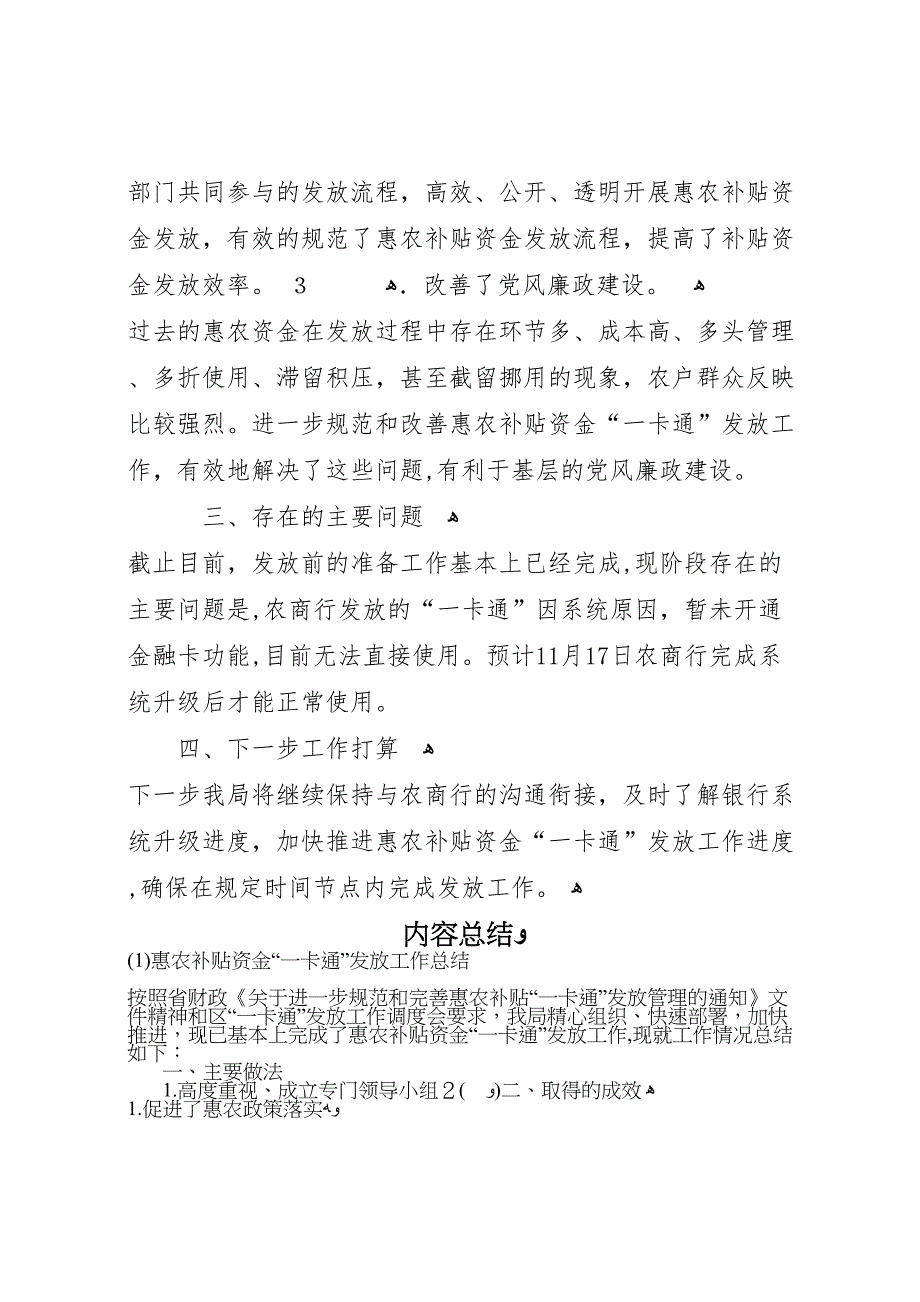 部门共同参与的发放流程，高效、公开、透明开展惠农补贴资
金发放，有效的规范了惠农补贴资金发放流程，提高了补贴资
金发放效率。 3 ﻫ. 改善了党风廉政建设。 ﻫ
过去的惠农资金在发放过程中存在环节多、成本高、多头管理
、多折使用、滞留积压，甚至截留挪用的现象，农户群众反映
比较强烈。进一步规范和改善惠农补贴资金“一卡通”发放工
作，有效地解决了这些问题,有利于基层的党风廉政建设。
三、存在的主要问题 ﻫ
截止目前，发放前的准备工作基本上已经完成,现阶段存在的
主要问题是,农商行发放的“一卡通”因系统原因，暂未开通
金融卡功能,目前无法直接使用。预计11月17日农商行完成系
统升级后才能正常使用。
四、下一步工作打算 ﻫ
下一步我局将继续保持与农商行的沟通衔接，及时了解银行系
统升级进度，加快推进惠农补贴资金“一卡通”发放工作进度
,确保在规定时间节点内完成发放工作。 ﻫ
内容总结و
(1)惠农补贴资金“一卡通”发放工作总结
按照省财政《关于进一步规范和完善惠农补贴“一卡通”发放管理的通知》文
件精神和区“一卡通”发放工作调度会要求，我局精心组织、快速部署，加快
推进，现已基本上完成了惠农补贴资金“一卡通”发放工作,现就工作情况总结
如下：
一、主要做法
1.高度重视、成立专门领导小组２(و)二、取得的成效ﻫ
1.促进了惠农政策落实وﻪ